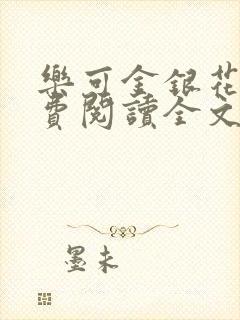 樂可金銀花
費閱讀全文
墨未